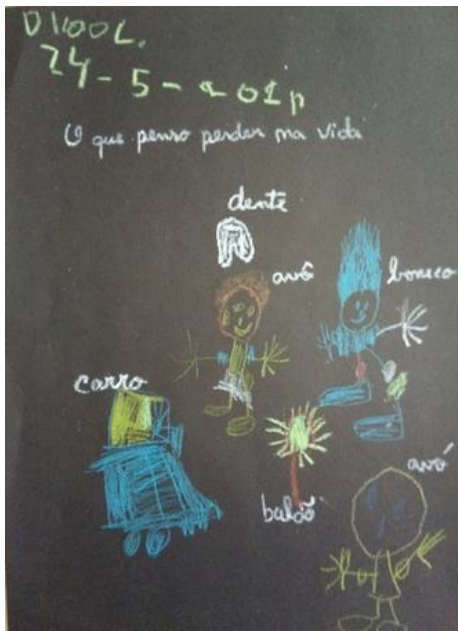 DIOOL.
24-5-2019
O que penso perder na vida
dente
avô
boneco
carro
balõo
avó